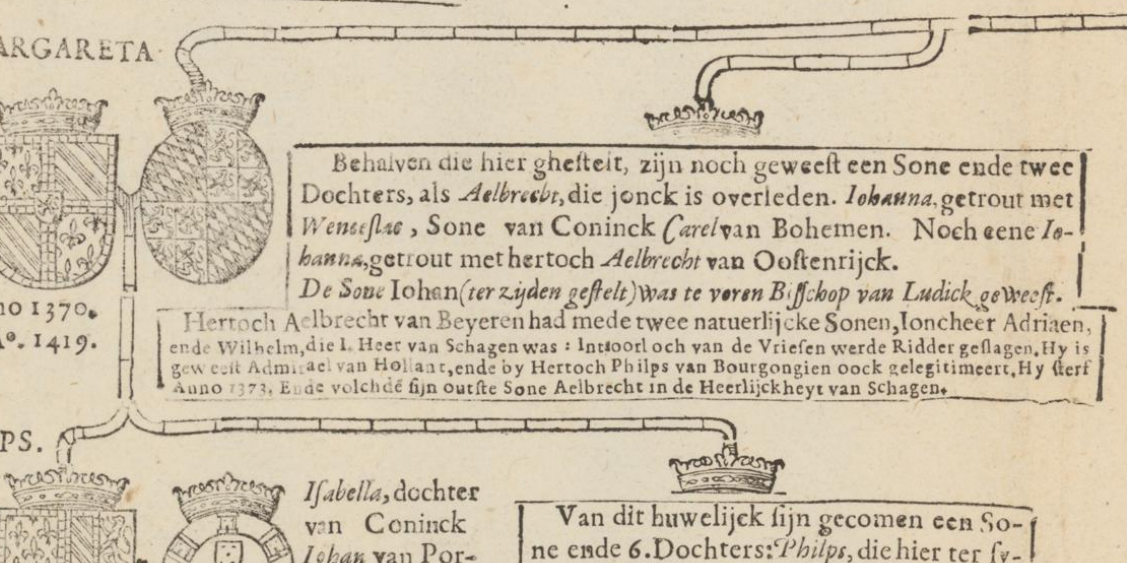 ARGARETA
Behalven die hier ghesteit, zijn noch geweest een Sone ende twee
Dochters, als Aelbrecht, die jonck is overleden. Iohanna, getrout met
Wenceslae, Sone van Coninck Carel van Bohemen. Noch eene Io-
hanna, getrout met hertoch Aelbrecht van Oostenrijck.
De Sone Iohan (ter zijden gestelt) was te voren Bisschop van Ludick geweest.
no 1370.
A°. 1419.
Hertoch Aelbrecht van Beyeren had mede twee natuerlijcke Sonen, Ioncheer Adriaen,
ende Wilhelm, die 1. Heer van Schagen was : Int oorloch van de Vriesen werde Ridder geslagen. Hy is
geweest Admirael van Hollant, ende by Hertoch Philps van Bourgongien oock gelegitimeert. Hy sterf
Anno 1373. Ende volchdē sijn outste Sone Aelbrecht in de Heerlijckheyt van Schagen.
PS.
Isabella, dochter
van Coninck
Iohan van Por-
Van dit huwelijck sijn gecomen een So-
ne ende 6. Dochters: Philps, die hier ter sy-